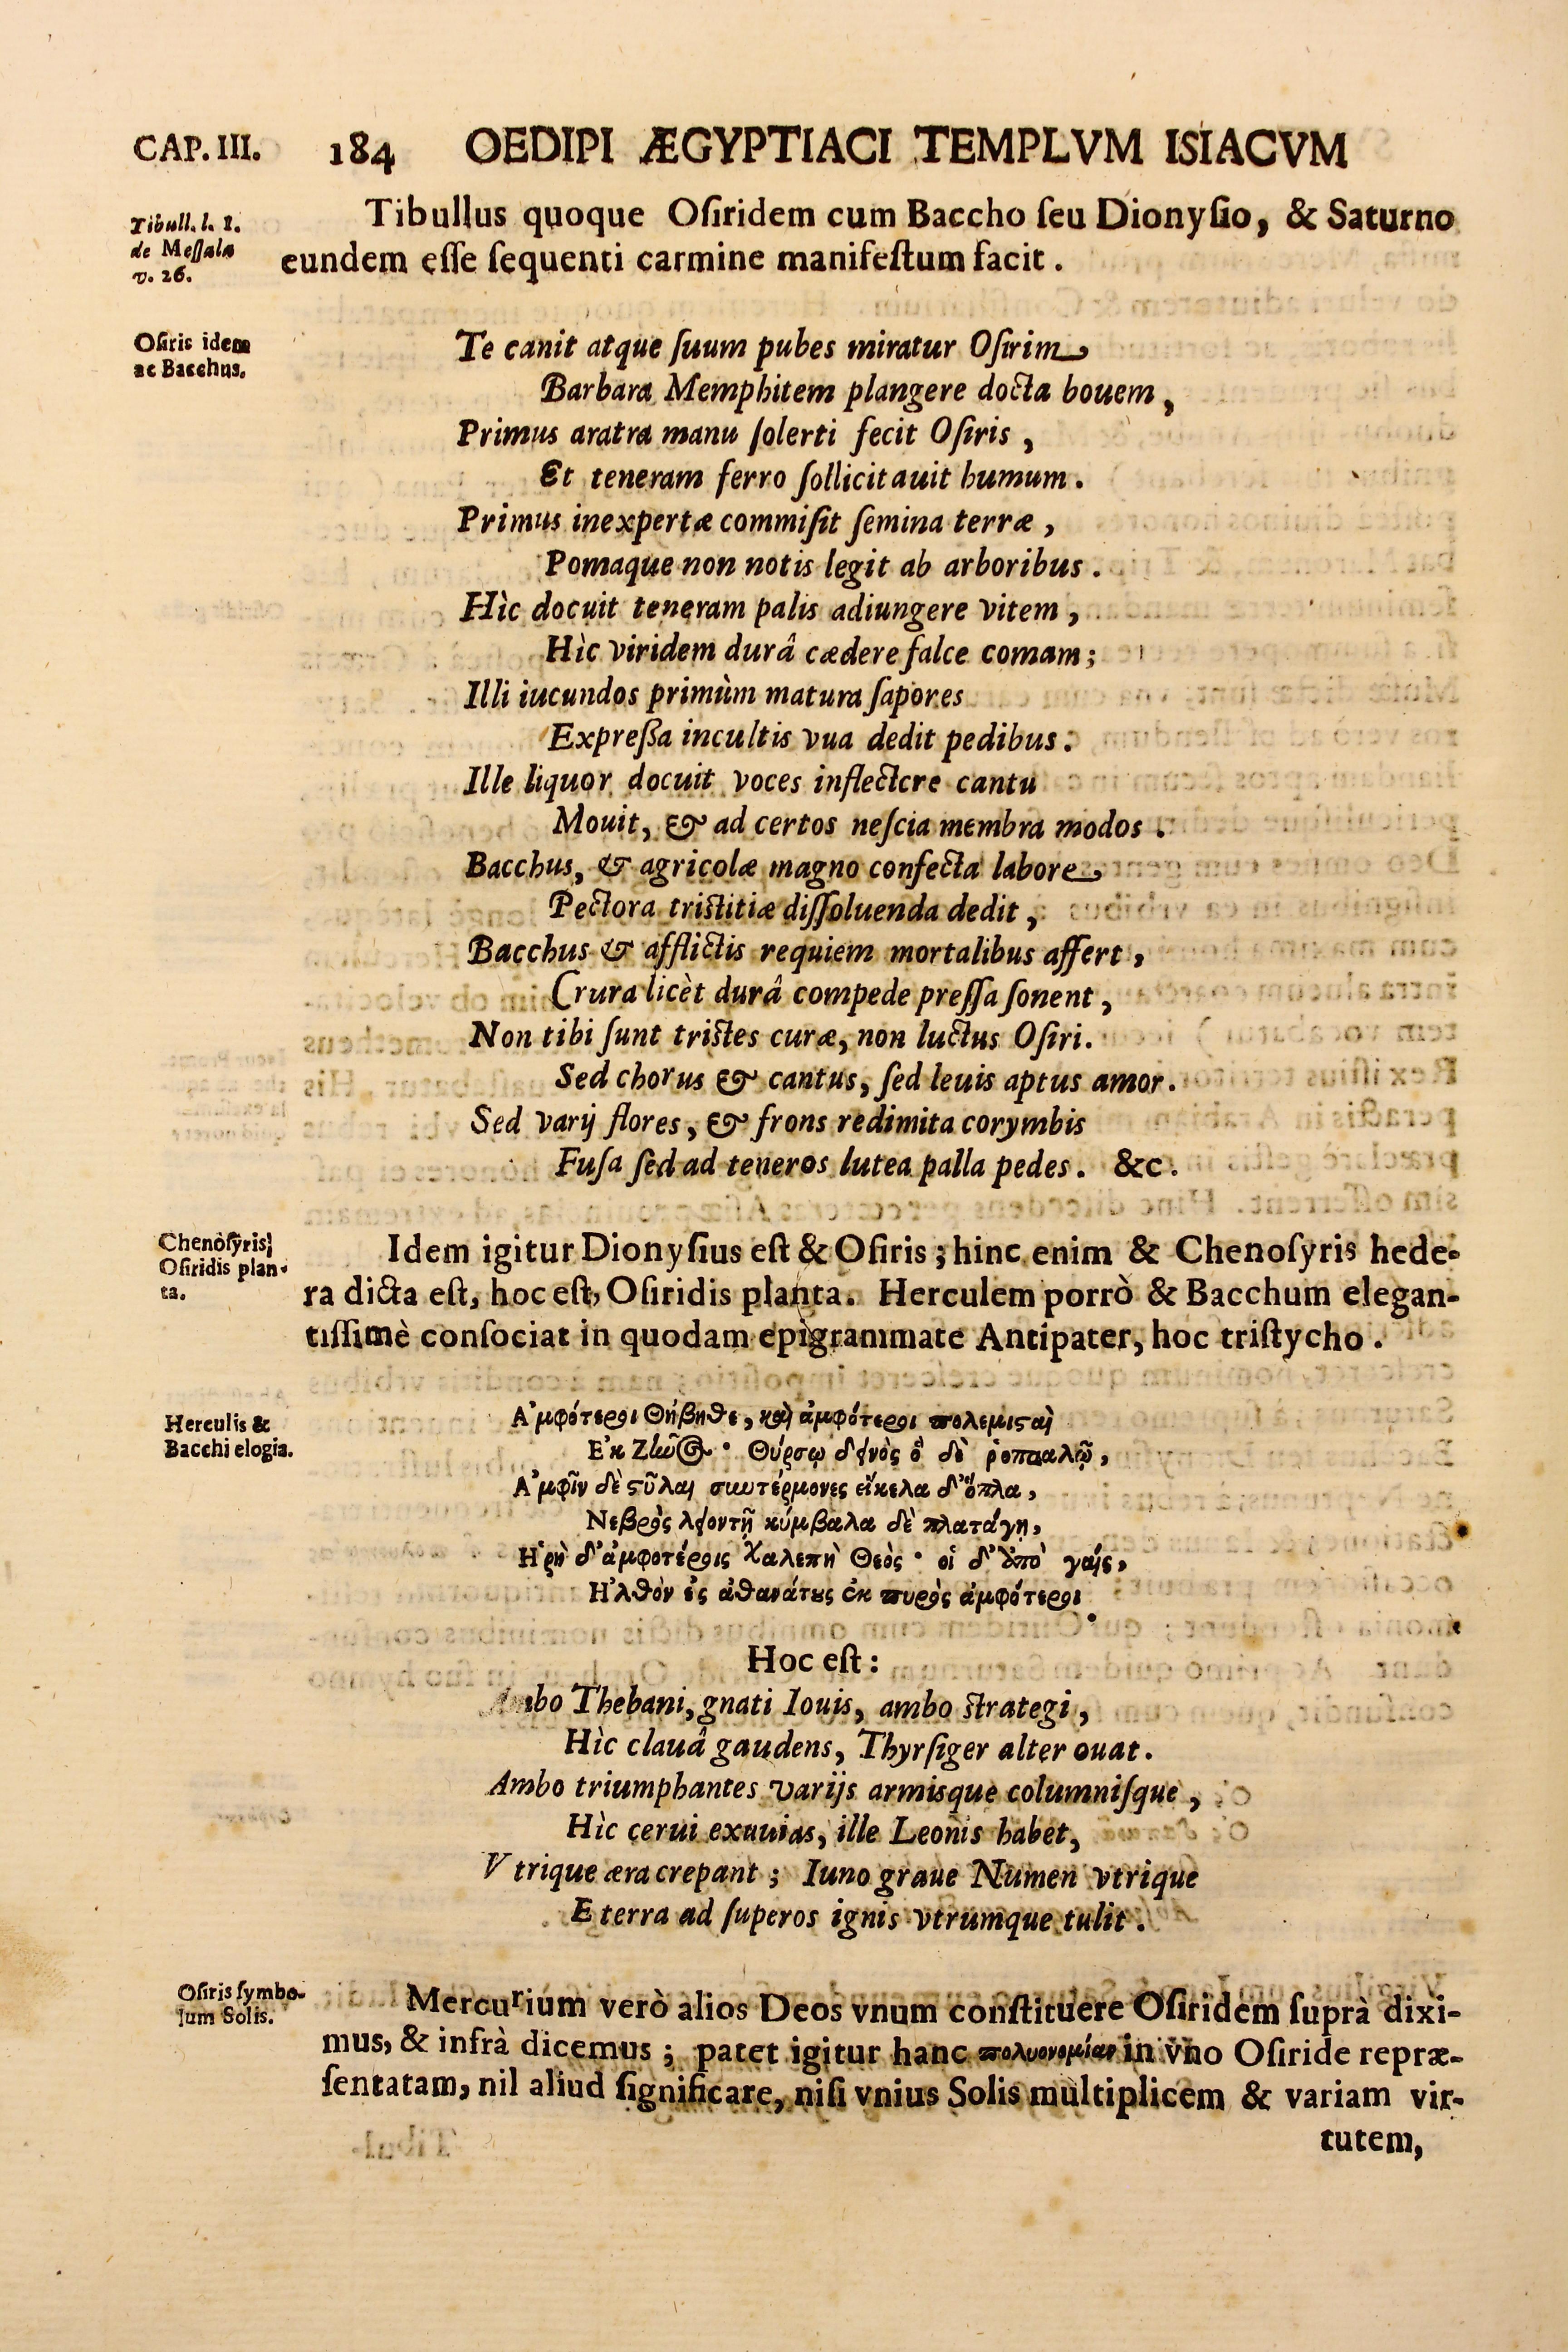 CAP. III. 184 OEDIPI ÆGYPTIACI TEMPLVM ISIACVM
Tibull. l. 1.
de Meſſala
v. 26.
Tibullus quoque Oſiridem cum Baccho ſeu Dionyſio, & Saturno
eundem eſſe ſequenti carmine manifeſtum facit.
Oſiris idem
ac Bacchus.
Te canit atque ſuum pubes miratur Oſirim
Barbara Memphitem plangere docta bouem,
Primus aratra manu ſolerti fecit Oſiris,
Et teneram ferro ſollicitauit humum.
Primus inexpertæ commiſit ſemina terræ,
Pomaque non notis legit ab arboribus.
Hìc docuit teneram palis adiungere vitem,
Hìc viridem durâ cædere falce comam;
Illi iucundos primùm matura ſapores
Expreſſa incultis vua dedit pedibus:
Ille liquor docuit voces inflectere cantu
Mouit, & ad certos neſcia membra modos.
Bacchus, & agricolæ magno confecta labore
Pectora triſtitiæ diſſoluenda dedit,
Bacchus & afflictis requiem mortalibus affert,
Crura licèt durâ compede preſſa ſonent,
Non tibi ſunt triſtes curæ, non luctus Oſiri.
Sed chorus & cantus, ſed leuis aptus amor.
Sed varij flores, & frons redimita corymbis
Fuſa ſed ad teneros lutea palla pedes. &c.
Chenòſyris
Oſiridis plan-
ta.
Idem igitur Dionyſius eſt & Oſiris; hinc enim & Chenoſyris hede-
ra dicta eſt, hoc eſt, Oſiridis planta. Herculem porrò & Bacchum elegan-
tiſſimè conſociat in quodam epigrammate Antipater, hoc triſtycho.
Herculis &
Bacchi elogia.
Α᾿μφότεροι Θήβηθε, καὶ ἀμφότεροι πολεμισταὶ
Ἐκ Ζηνὸς· Θύρσῳ δεινὸς ὃ δὲ ῥοπααλῷ,
Α᾿μφῖν δὲ στῦλαι συντέρμονες εἴκελα δ᾽ ὅπλα,
Νεβρὸς λέοντῆ κύμβαλα δὲ πλατάγη,
Ἥρη δ᾽ ἀμφοτέροις χαλεπὴ Θεὸς· οἱ δ᾽ ὑπὸ γαίης,
Η῏λθόν ἐς ἀθανάτους ἐκ πυρὸς ἀμφότεροι.
Hoc eſt:
Ambo Thebani, gnati Iouis, ambo ſtrategi,
Hìc clauâ gaudens, Thyrſiger alter ouat.
Ambo triumphantes varijs armisque columniſque,
Hìc cerui exuuias, ille Leonis habet,
Vtrique æra crepant; Iuno graue Numen vtrique
E terra ad ſuperos ignis vtrumque tulit.
Oſiris ſymbo-
lum Solis.
Mercurium verò alios Deos vnum conſtituere Oſiridem ſuprà dixi-
mus, & infrà dicemus; patet igitur hanc πολυονομίαν in vno Oſiride repræ-
ſentatam, nil aliud ſignificare, niſi vnius Solis multiplicem & variam vir-
tutem,